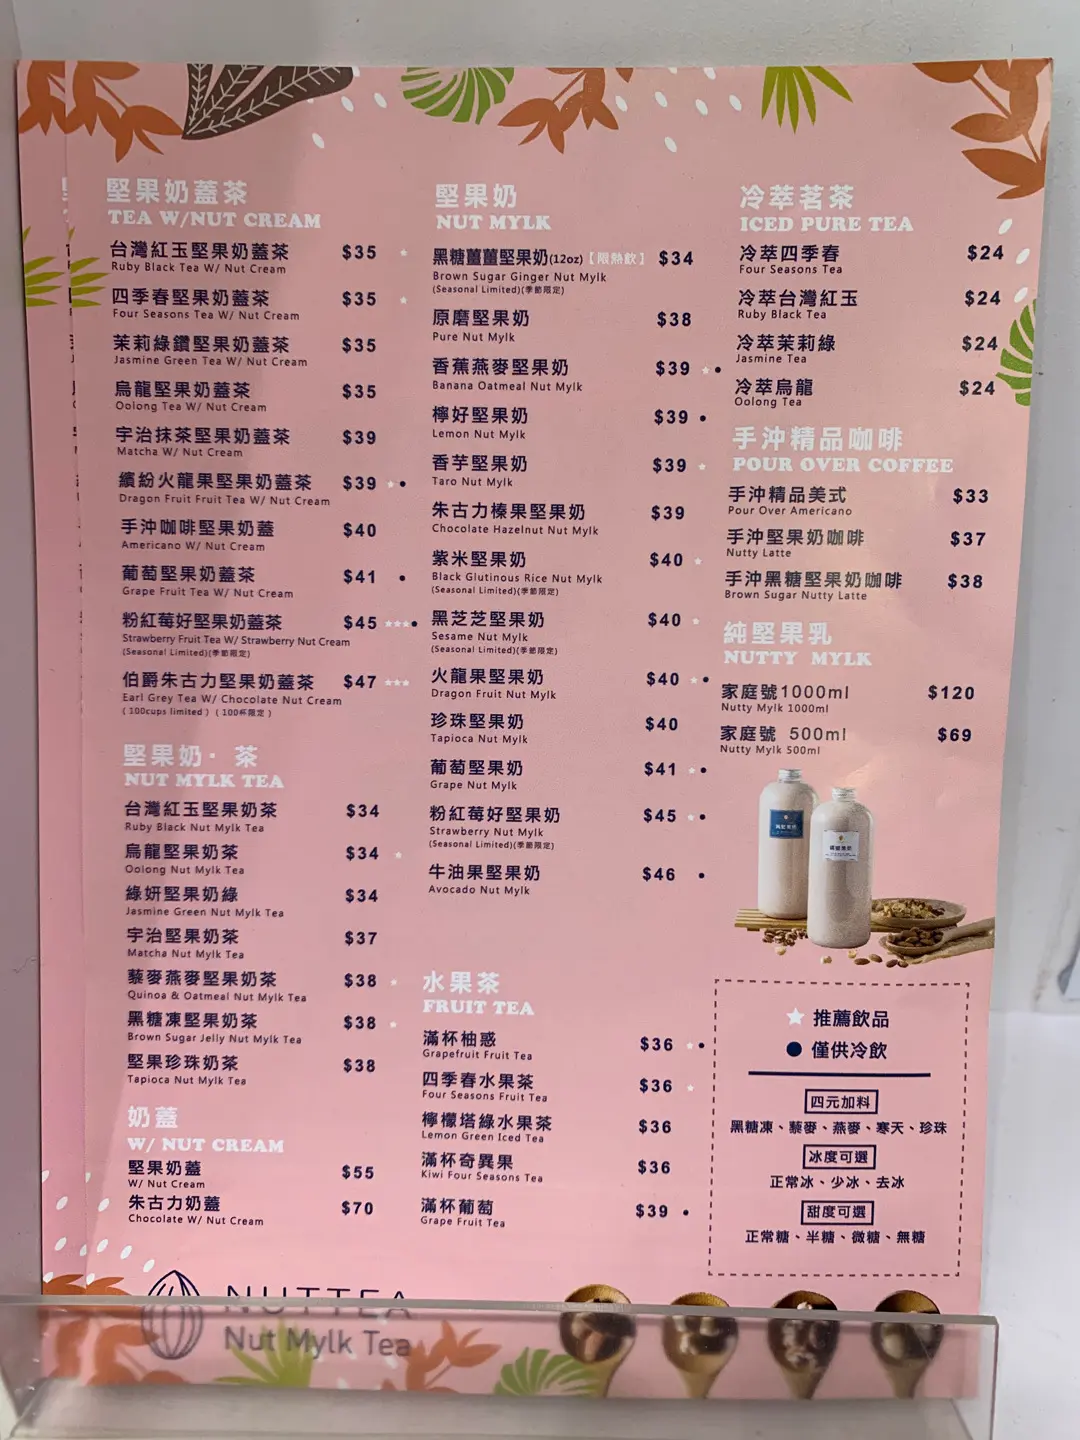 堅果奶蓋茶
TEA W/NUT CREAM
台灣紅玉堅果奶蓋茶 $35
Ruby Black Tea W/ Nut Cream
四季春堅果奶蓋茶 $35
Four Seasons Tea W/ Nut Cream
茉莉綠鑽堅果奶蓋茶 $35
Jasmine Green Tea W/ Nut Cream
烏龍堅果奶蓋茶 $35
Oolong Tea W/ Nut Cream
宇治抹茶堅果奶蓋茶 $39
Matcha W/ Nut Cream
繽紛火龍果堅果奶蓋茶 $39
Dragon Fruit Fruit Tea W/ Nut Cream
手沖咖啡堅果奶蓋 $40
Americano W/ Nut Cream
葡萄堅果奶蓋茶 $41
Grape Fruit Tea W/ Nut Cream
粉紅莓好堅果奶蓋茶 $45
Strawberry Fruit Tea W/ Strawberry Nut Cream
(Seasonal Limited)(季節限定)
伯爵朱古力堅果奶蓋茶 $47
Earl Grey Tea W/ Chocolate Nut Cream
(100cups limited) (100杯限定)
堅果奶·茶
NUT MYLK TEA
台灣紅玉堅果奶茶 $34
Ruby Black Nut Mylk Tea
烏龍堅果奶茶 $34
Oolong Nut Mylk Tea
綠妍堅果奶綠 $34
Jasmine Green Nut Mylk Tea
宇治堅果奶茶 $37
Matcha Nut Mylk Tea
藜麥燕麥堅果奶茶 $38
Quinoa & Oatmeal Nut Mylk Tea
黑糖凍堅果奶茶 $38
Brown Sugar Jelly Nut Mylk Tea
堅果珍珠奶茶 $38
Tapioca Nut Mylk Tea
奶蓋
W/ NUT CREAM
堅果奶蓋 $55
W/ Nut Cream
朱古力奶蓋 $70
Chocolate W/ Nut Cream
堅果奶
NUT MYLK
黑糖薑薑堅果奶(12oz)【限熱飲】 $34
Brown Sugar Ginger Nut Mylk
(Seasonal Limited)(季節限定)
原磨堅果奶 $38
Pure Nut Mylk
香蕉燕麥堅果奶 $39
Banana Oatmeal Nut Mylk
檸好堅果奶 $39
Lemon Nut Mylk
香芋堅果奶 $39
Taro Nut Mylk
朱古力榛果堅果奶 $39
Chocolate Hazelnut Nut Mylk
紫米堅果奶 $40
Black Glutinous Rice Nut Mylk
(Seasonal Limited)(季節限定)
黑芝芝堅果奶 $40
Sesame Nut Mylk
(Seasonal Limited)(季節限定)
火龍果堅果奶 $40
Dragon Fruit Nut Mylk
珍珠堅果奶 $40
Tapioca Nut Mylk
葡萄堅果奶 $41
Grape Nut Mylk
粉紅莓好堅果奶 $45
Strawberry Nut Mylk
(Seasonal Limited)(季節限定)
牛油果堅果奶 $46
Avocado Nut Mylk
水果茶
FRUIT TEA
滿杯柚惑 $36
Grapefruit Fruit Tea
四季春水果茶 $36
Four Seasons Fruit Tea
檸檬塔綠水果茶 $36
Lemon Green Iced Tea
滿杯奇異果 $36
Kiwi Four Seasons Tea
滿杯葡萄 $39
Grape Fruit Tea
冷萃茗茶
ICED PURE TEA
冷萃四季春 $24
Four Seasons Tea
冷萃台灣紅玉 $24
Ruby Black Tea
冷萃茉莉綠 $24
Jasmine Tea
冷萃烏龍 $24
Oolong Tea
手沖精品咖啡
POUR OVER COFFEE
手沖精品美式 $33
Pour Over Americano
手沖堅果奶咖啡 $37
Nutty Latte
手沖黑糖堅果奶咖啡 $38
Brown Sugar Nutty Latte
純堅果乳
NUTTY MYLK
家庭號1000ml $120
Nutty Mylk 1000ml
家庭號 500ml $69
Nutty Mylk 500ml
推薦飲品
僅供冷飲
四元加料
黑糖凍、藜麥、燕麥、寒天、珍珠
冰度可選
正常冰、少冰、去冰
甜度可選
正常糖、半糖、微糖、無糖
NUTTEA
Nut Mylk Tea